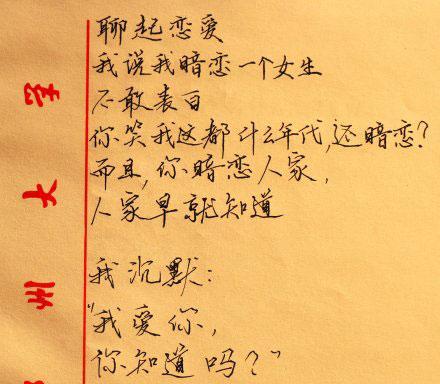 聊起恋爱
我说我暗恋一个女生
不敢表白
你笑我这都什么年代,还暗恋?
而且,你暗恋人家,
人家早就知道
我沉默:
"我爱你,
你知道吗?"
州大学